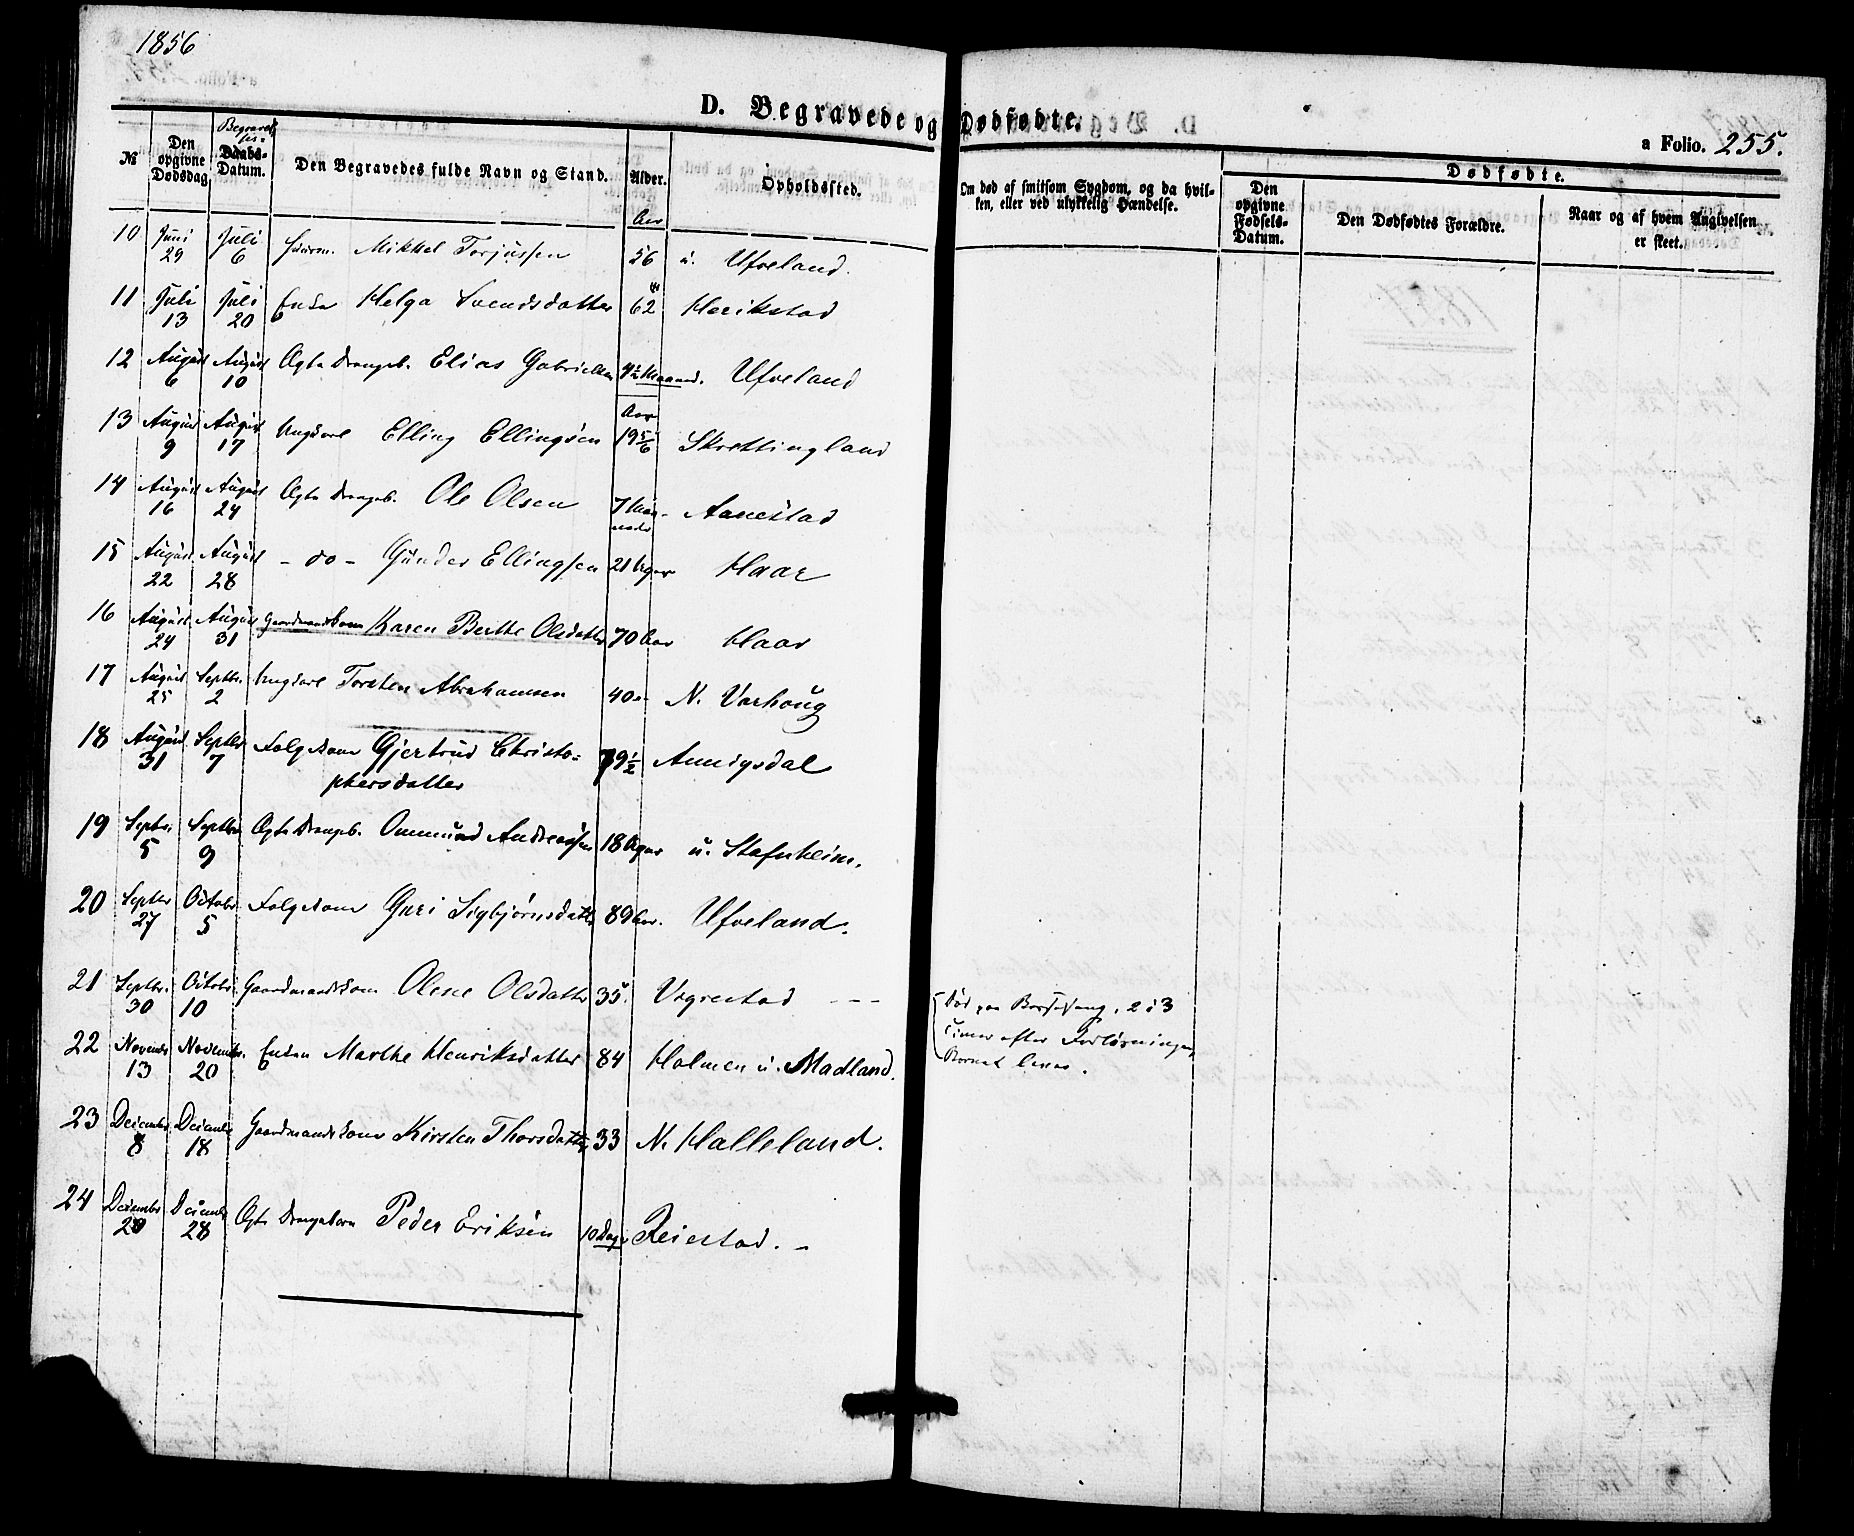 1856
D. Begravede og Dødfødte.
a Folio. 255.
№
Den opgivne Dødsdag
Begravelses-
Daabs-Datum.
Den Begravedes fulde Navn og Stand.
Alder.
Opholdssted.
Om død af smitsom Sygdom, og da hvilken, eller ved ulykkelig Hændelse.
Dødfødte.
Den opgivne Fødsels-Datum.
Den Dødfødtes Forældre.
Naar og af hvem Angivelsen er skeet.
Aar
10 Juni 29 Juli 6 Mikkel Torjussen 56 u. Ufveland.
11 Juli 13 Juli 20 Enke Helga Svendsdatter 62 Herikstad
12 August 6 August 10 Ægte Drengeb. Elias Gabrielsen 4½ Maaned. Ufveland
Aar
13 August 9 August 17 Ungkarl Elling Ellingsen 19 5/6 Skrettingland
14 August 16 August 24 Ægte Drengeb. Ole Olsen 7 Maaneder Aanestad
15 August 22 August 28 - do - Gunder Ellingsen 21 Uger Haar
16 August 24 August 31 Gaardmandskone Karen Berthe Olsdatter 70 Aar Haar
17 August 25 Septbr. 2 Ungkarl Torsten Abrahamsen 40 N. Varhoug
18 August 31 Septbr 7 Folgekone Gjertrud Christo=
phersdatter 79½ Aunigsdal
19 Septbr. 5 Septbr 9 Ægte Drengeb. Ommund Andreassen 18 Uger u. Stafnheim.
20 Septbr 27 Octobr. 5 Folgekone Guri Sigbjørnsdatter 89 Aar. Ufveland.
21 Septbr. 30 Octobr. 10 Gaardmandskone Olene Olsdatter 35. Vigrestad - - - Død paa Barselseng, 2 à 3
Timer efter Forløsningen,
Barnet lever.
22 Novembr 13 Novembr. 20 Enken Marthe Henriksdatter 84 Holmen u. Madland.
23 Decembr 8 Decembr 18 Gaardmandskone Kirsten Thorsdatter 33 N. Halleland.
24 Decembr 20 Decembr 28 Ægte Drengebarn Peder Eriksen 10 Dage Reiestad. -